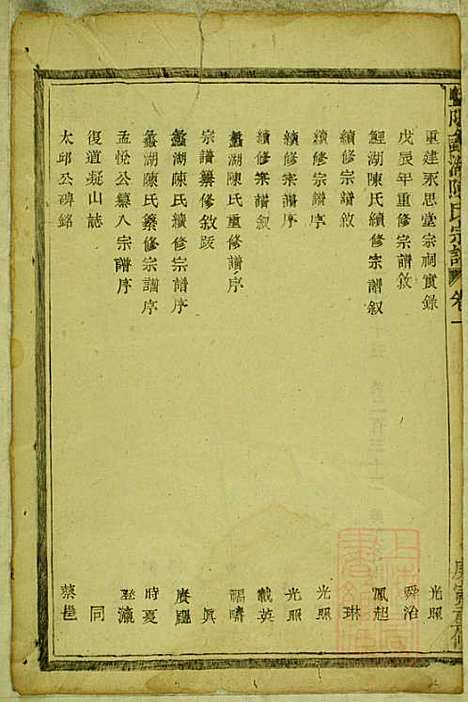 陳氏宗譜 卷一
重建永思堂宗祠實錄 光照
戊辰年重修宗譜敘 舜治
鯉湖陳氏續修宗譜叙 鳳起
續修宗譜敘 琳
續修宗譜序 光照
續修宗譜序 光照
續修宗譜叙 載英
蠡湖陳氏重修譜序 福疇
宗譜纂修敘跋 眞
蠡湖陳氏續修宗譜序 賡颺
蠡湖陳氏纂修宗譜序 時夏
孟悅公纂入宗譜序
復道凝山誌 同
太邱公碑銘 蔡邕